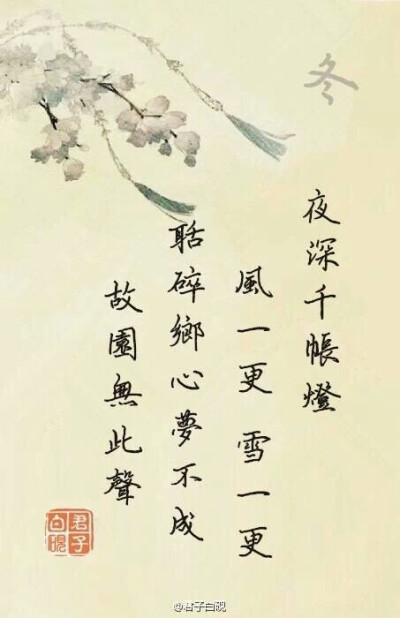 冬
夜深千帳燈
風一更 雪一更
聒碎鄉心夢不成
故園無此聲
君子白硯
@君子白硯